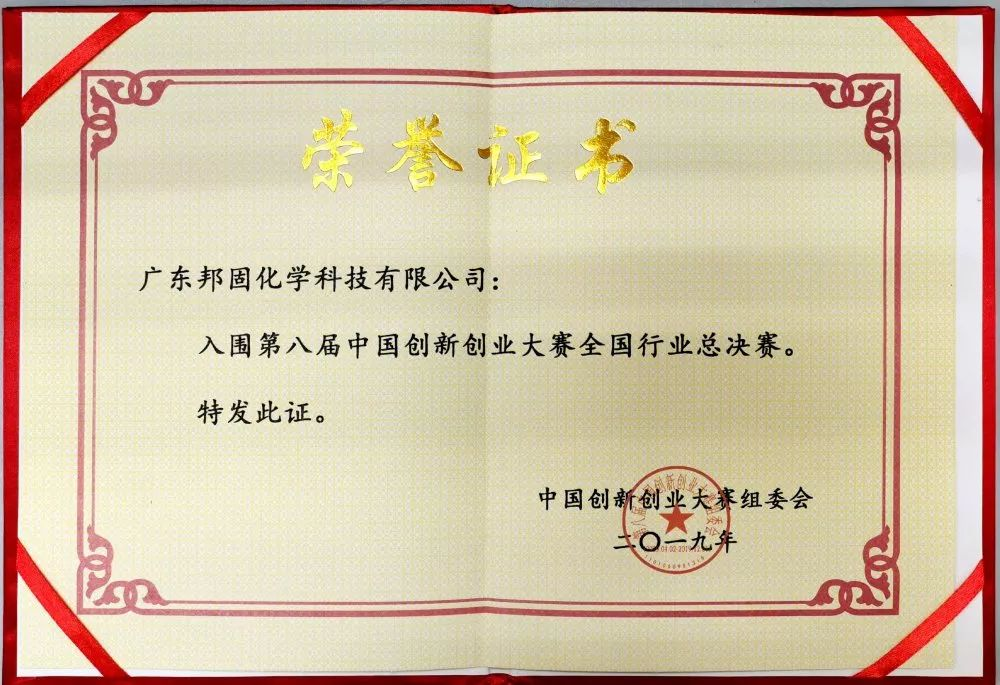 荣誉证书
广东邦固化学科技有限公司：
入围第八届中国创新创业大赛全国行业总决赛。
特发此证。
中国创新创业大赛组委会
二〇一九年